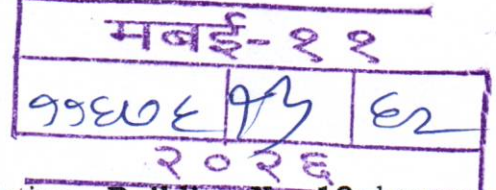 मबई-११
११६७६ ६२
२०२६